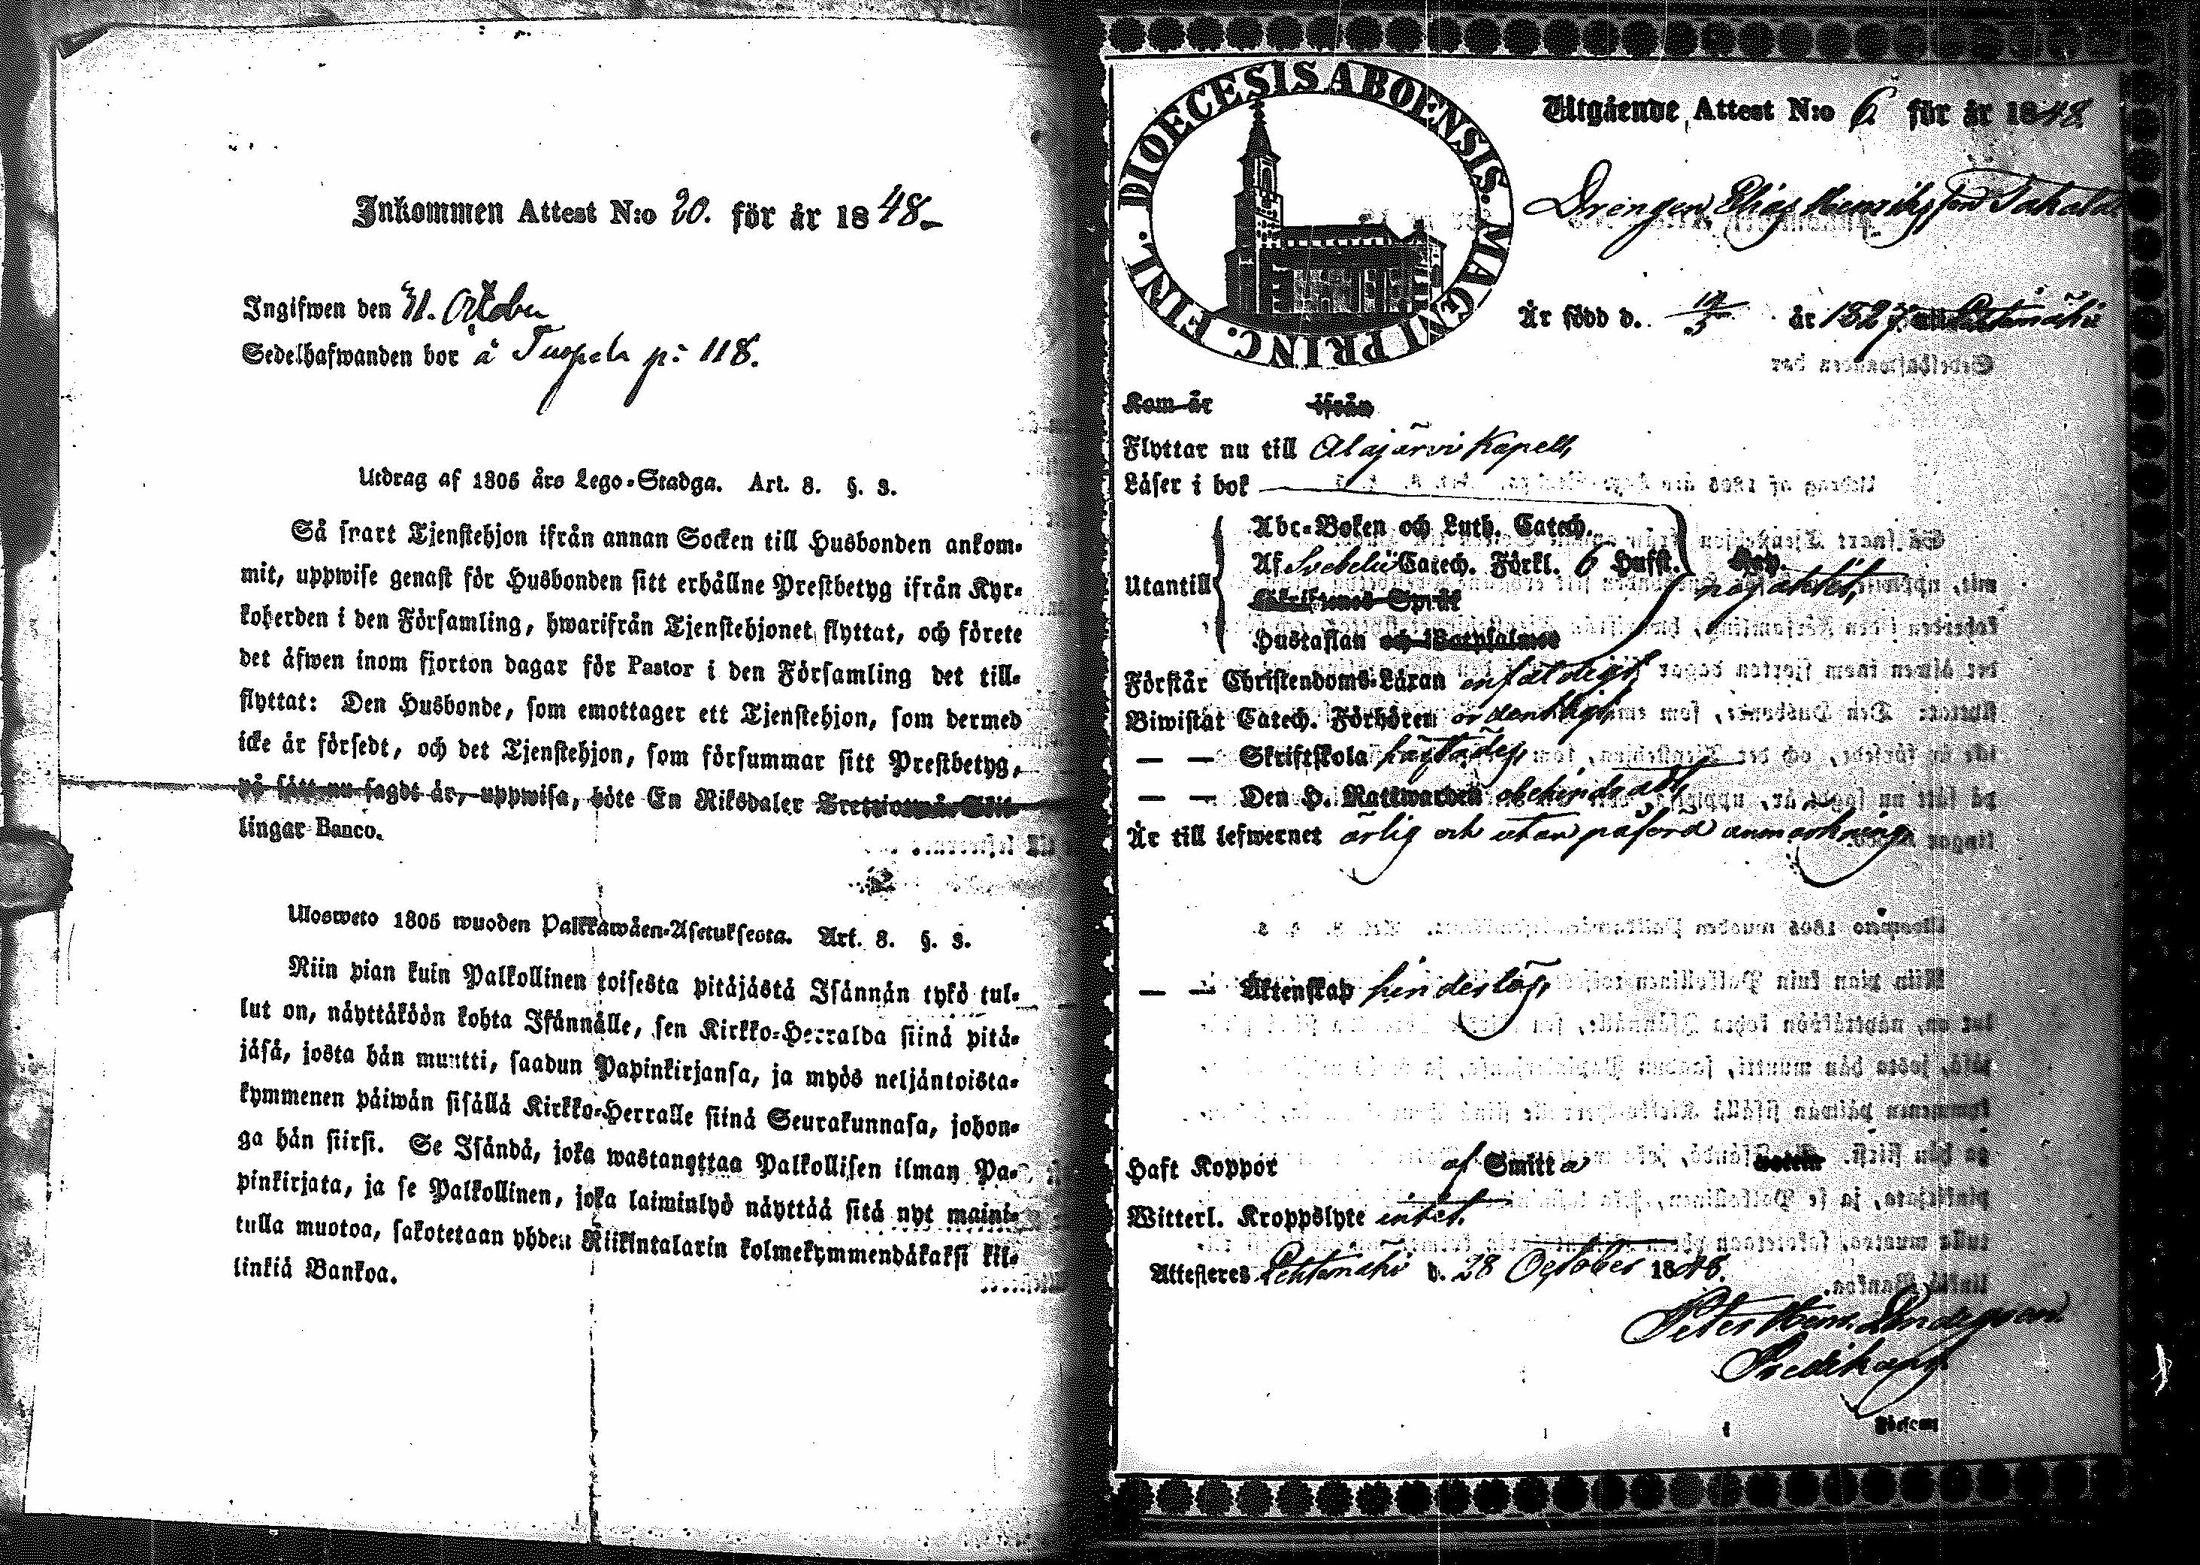 Inkommen Attest N:o 20. för år 1848.
Ingifwen den 31. October
Sedelhafwanden bor å p: 118.
Utdrag af 1805 års Lego-Stadga. Art. 8. §. 3.
Så snart Tjenstehjon ifrån annan Socken till Husbonden ankom-
mit, uppwise genast för Husbonden sitt erhållne Prestbetyg ifrån Kyr-
koherden i den Församling, hwarifrån Tjenstehjonet flyttat, och förete
det äfwen inom fjorton dagar för Pastor i den Församling det till-
flyttat: Den Husbonde, som emottager ett Tjenstehjon, som dermed
icke är försedt, och det Tjenstehjon, som försummar sitt Prestbetyg,
på sätt nu sagdt är, uppwisa, böte En Riksdaler Trettiotwå Skil-
lingar Banco.
Ulosweto 1805 wuoden Palkkawäen-Asetuksesta. Art. 8. §. 3.
Niin pian kuin Palkollinen toisesta pitäjästä Isännän tykö tul-
lut on, näyttäköön kohta Isännälle, sen Kirkko-Herralda siinä pitä-
jäsä, josta hän muutti, saadun Papinkirjansa, ja myös neljäntoista-
kymmenen päiwän sisällä Kirkko-Herralle siinä Seurakunnasa, johon-
ga hän siirsi. Se Isändä, joka wastanottaa Palkollisen ilman Pa-
pinkirjata, ja se Palkollinen, joka laiminlyö näyttää sitä nyt maini-
tulla muotoa, sakotetaan yhden Riikintalarin kolmekymmendäkaksi kil-
linkiä Bankoa.
DIOECESIS ABOENSIS. MAGNI PRINC. FINL.
Utgående Attest N:o 6 för år 1848.
Drengen Elias Henriksson Takala
Är född d. 12/3 år 1827 Lehtimäki
Kom år ifrån
Flyttar nu till Alajärvi Kapell,
Läser i bok
Utantill
Abc-Boken och Luth. Catech.
Af Svebelii Catech. Förkl. 6 Hufst.
Skriftenes Språk
Hustaflan och Botpsalmer
Förstår Christendoms-Läran enfaldigt,
Biwistat Catech. Förhören ordentligt,
— — Skriftskola
— — Den H. Nattwarden obehindradt,
Är till lefwernet ärlig och utan påförd anmärkning,
— — Äktenskap hinderlös,
Haft Koppor af Smitta
Witterl. Kroppslyte intet.
Attesteres Lehtimäki d. 28 October 1848.
Peter Henr. Lindeqvist
Predikant